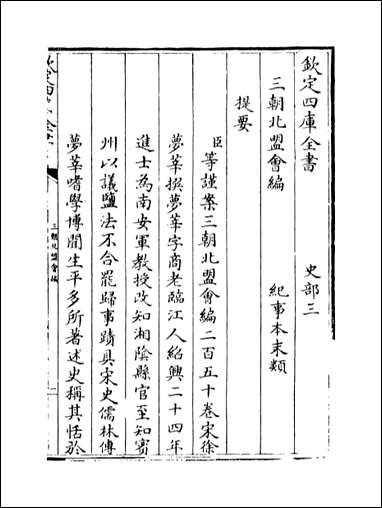 欽定四庫全書　史部三
三朝北盟會編　紀事本末類
提要
臣等謹案三朝北盟會編二百五十卷宋徐
夢莘撰夢莘字商老臨江人紹興二十四年
進士為南安軍教授改知湘陰縣官至知賓
州以議鹽法不合罷歸事蹟具宋史儒林傳
夢莘嗜學博聞生平多所著述史稱其恬於
三朝北盟會編